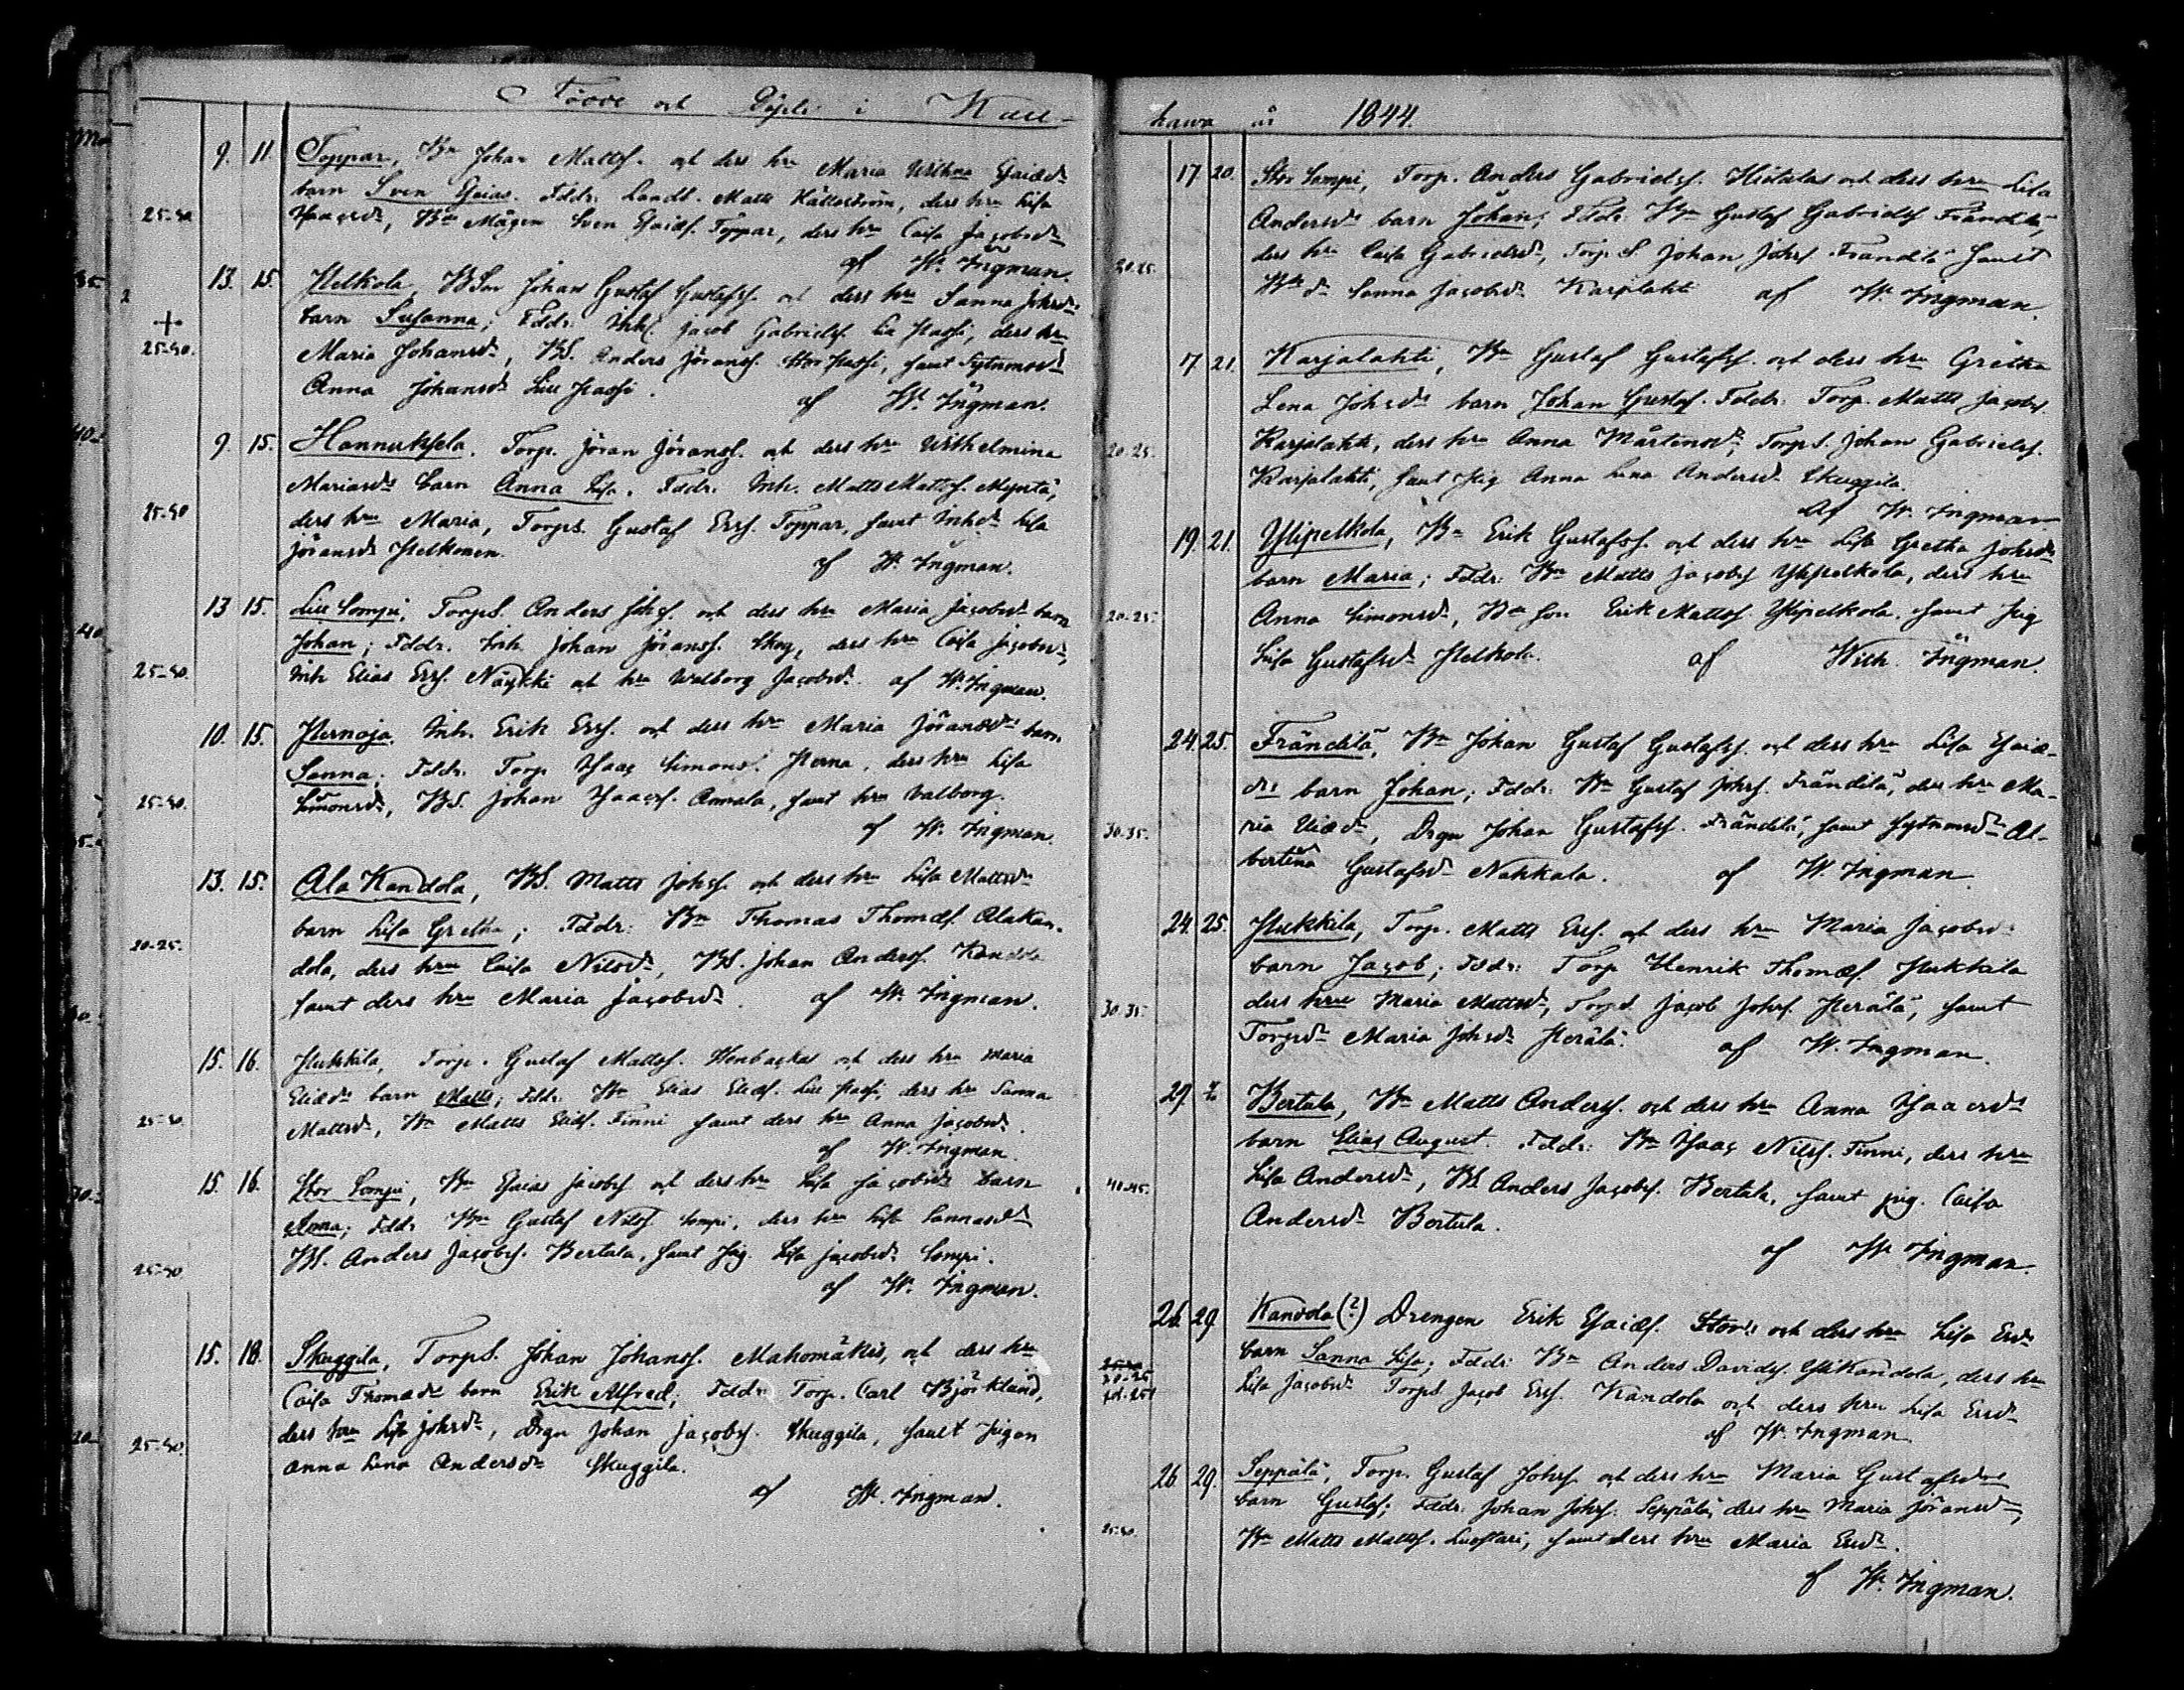 Födde och Döpte i Kau-
9. 11. Toppar, Bn Johan Mattss. och dess hru Maria Wilhma Esaiædr
barn Sven Esaias. Fddr. Landb. Matts Källström, dess hru Lisa
25-30. Isaacsdr, Bde Mågen Sven Esaiæs. Toppar, dess hru Caisa Jacobsdr
af W. Ingman.
13. 15. Helkola, BSon Johan Gustaf Gustafss. och dess hru Sanna Johsdrs
barn Susanna; Fddr: Inh. Jacob Gabrielss. Lill Passi, dess hru
25-30. Maria Johansdr, BS. Anders Jöranss. Stor Passi, samt Sytnmsdr
Anna Johansdr Lill Passi. af W. Ingman.
9. 15. Hannuksela. Torp. Jöran Jöranss. och dess hru Wilhelmina
Mariasdrs barn Anna Lisa. Fddr. Inh. Matts Mattss.
25-30 dess hru Maria, Torps. Gustaf Erss. Toppar, samt Inhdr Lisa
Jöransdr Helkonen. af W. Ingman.
13 15. Lill Sompi, TorpS. Anders Johss. och dess hru Maria Jacobsdr barn
Johan; Fddr. Inh. Johan Jöranss. Skog, dess hru Caisa Jacobsdr,
25-30. Inh Elias Erss. Näykki och hru Walborg Jacobsdr. af W. Ingman.
10. 15. Hernoja. Inh. Erik Erss. och dess hru Maria Jöransdrs barn
Sanna; Fddr. Torp Isaac Simonss. Herna, dess hru Lisa
25-30. Simonsdr, BS. Johan Isaacss. Annala, samt hru Valborg.
af W. Ingman.
13. 15. Ala Kandola, BS. Matts Johss. och dess hru Lisa Mattsdr
barn Lisa Gretha; Fddr: Bn Thomas Thomæs. Alakan-
20-25. dola, dess hru Caisa Nilsdr, BS. Johan Anderss. Kandola
samt dess hru Maria Jacobsdr. af W. Ingman.
15. 16. Hukkila, Torp. Gustaf Mattss. Wenbackas och dess hru Maria
Eliædr barn Matts; Fddr. Bn Elias Eliæs. Lill Passi, dess hru Sanna
25-30. Mattsdr, Bn Matts Eliæs. Finni samt dess hru Anna Jacobsdr.
af W. Ingman.
15. 16. Stor Sompi, Bn Esaias Jacobss och dess hru Lisa Jacobsdr barn
Anna; Fddr Bn Gustaf Nilss. Sompi, dess hru Lisa Sannasdr
25-30. BS. Anders Jacobss. Bertula, samt Pig. Lisa Jacobsdr Sompi.
af W. Ingman.
15. 18. Skuggila, TorpS. Johan Johanss. Mahomäkis, och dess hru
Caisa Thomædr barn Erik Alfred; Fddr Torp. Carl Björklund,
dess hru Lisa Johsdr, Drgn Johan Jacobss. Skuggila, samt Pigan
25-30. Anna Lena Andersdr Skuggila.
af W. Ingman.
hawa år 1844.
17. 20. Stor Sompi, Torp. Anders Gabrielss. Hietalas och dess hru Lisa
Andersdr barn Johan; Fddr: Bn Gustaf Gabrielss Frändilä,
30-25. dess hru Caisa Gabrielsdr, TorpS. Johan Johss Frändilä samt
Bdr Sanna Jacobsdr Karjalahti af W. Ingman.
17. 21. Karjalahti, Bn Gustaf Gustafss. och dess hru Gretha
Lena Johsdrs barn Johan Gustaf. Fddr: Torp. Matts Jacobss.
20-25. Karjalahti, dess hru Anna Mårtensdr, TorpS. Johan Gabrielss.
Karjalahti, samt Pig Anna Lena Andersdr Skuggila.
af W. Ingman
19. 21. Ylipelkola, Bn Erik Gustafss. och dess hru Lisa Gretha Johsdrs
barn Maria; Fddr: Bn Matts Jacobss Ylipelkola, dess hru
20-25. Anna Simonsdr, Bde Son Erik Mattss Ylipelkola, samt Pig
Lisa Gustafsdr Helkola. af Wilh. Ingman.
24. 25. Frändilä, Bn Johan Gustaf Gustafss. och dess hru Lisa Esaiæ-
drs barn Johan; Fddr: Bn Gustaf Johss. Frändilä, dess hru Ma-
30-35. ria Eliædr, Drgn Johan Gustafss. Frändilä, samt Sytnmsdr Al-
bertina Gustafsdr Nahkala. af W. Ingman.
24. 25. Hukkila, Torp. Matts Erss. och dess hru Maria Jacobsdr
barn Jacob; Fddr: Torp Henrik Thomæs. Hukkila
30-35. dess hru Maria Mattsdr, TorpS. Jacob Johss. Herälä, samt
Torpdr Maria Johsdr Herälä. af W. Ingman.
29. Bertula, Bn Matts Anderss. och dess hru Anna Isaacsdrs
barn Elias August. Fddr: Bn Isaac Nilss. Finni, dess hru
40-45. Lisa Andersdr, BS Anders Jacobss. Bertula, samt pig. Caisa
Andersdr Bertula.
af W. Ingman.
26. 29. Kandola (?) Drengen Erik Esaiæs. Stor och dess hru Lisa Ersdr
barn Sanna Lisa; Fddr: Bn Anders Davidss. Ylikandola, dess hru
20-25 Lisa Jacobsdr TorpS. Jacob Erss. Kandola och dess hru Lisa Ersdr
af W. Ingman
26. 29. Seppälä, Torp. Gustaf Johss. och dess hru Maria Gustafsdrs
barn Gustaf; Fddr. Johan Johss. Seppälä, dess hru Maria Jöransdr,
25-30. Bn Matts Mattss. Luostari, samt dess hru Maria Ersdr.
af W. Ingman.